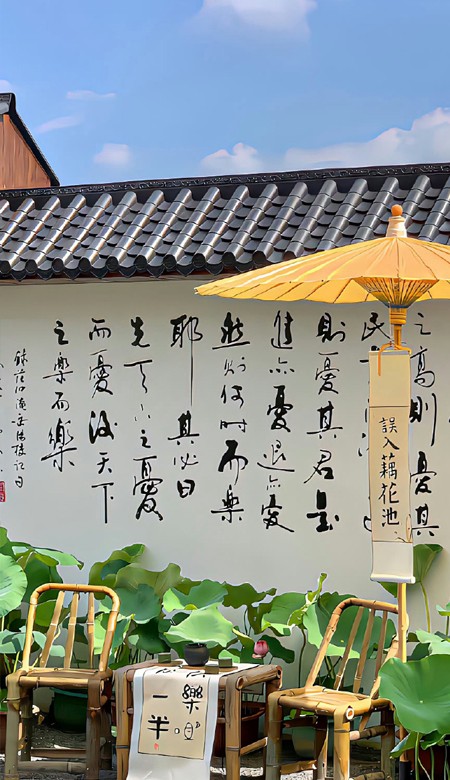 之高則憂其
民
則憂其君是
進亦憂退亦憂
然則何時而樂
耶其必曰
先天下之憂
而憂後天下
之樂而樂
錄范仲淹岳陽樓記句
誤入藕花池
樂吧
一半